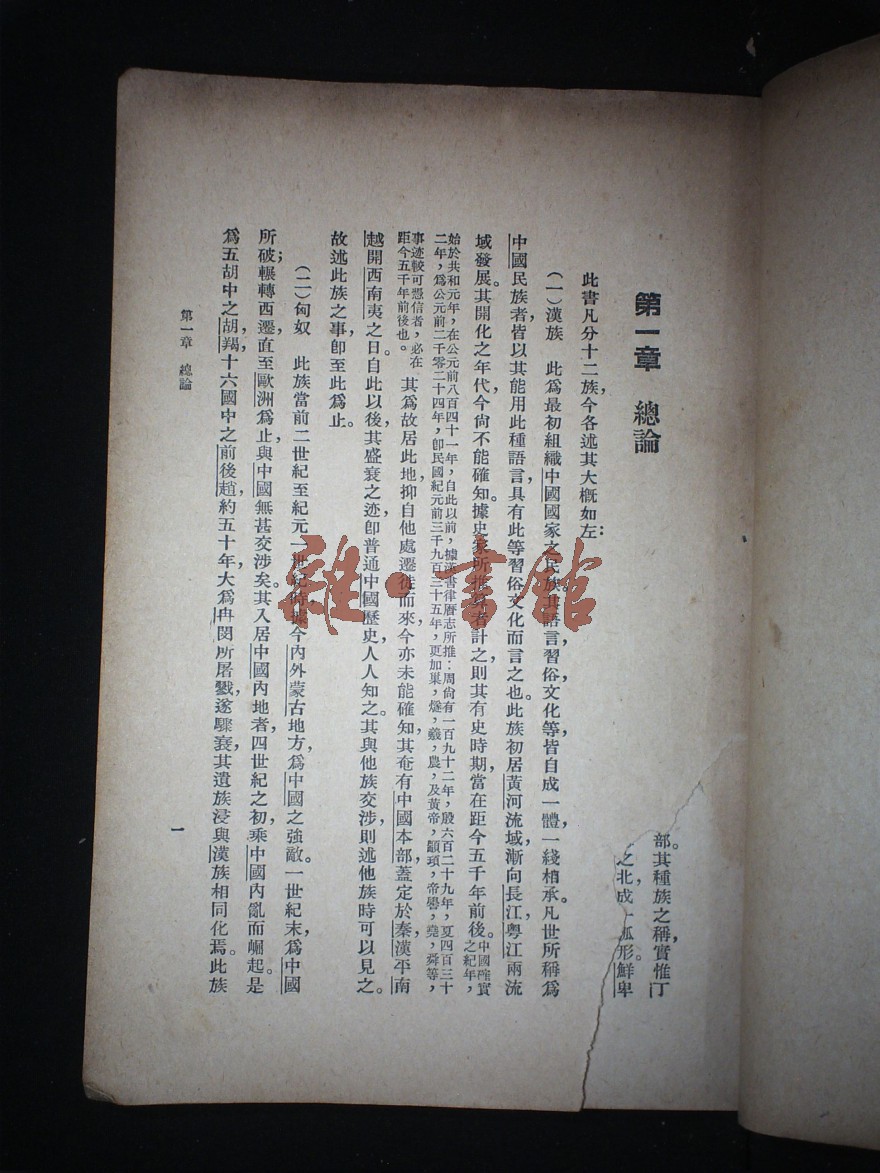 部。其種族之稱,實惟丁
之北,成一弧形。鮮卑
第一章 總論
此書凡分十二族,今各述其大概如左:
(一)漢族 此爲最初組織中國國家之民族。其語言習俗文化等,皆自成一體,一綫相承。凡世所稱爲
中國民族者,皆以其能用此種語言,具有此等習俗文化而言之也。此族初居黃河流域,漸向長江,粵江兩流
域發展。其開化之年代,今尙不能確知。據史家所推算者計之,則其有史時期,當在距今五千年前後。
中國確實
之紀年,
始於共和元年,在公元前八百四十一年,自此以前,據漢書律曆志所推:周尙有一百九十二年,殷六百二十九年,夏四百三十
二年,爲公元前二千零二十四年,卽民國紀元前三千九百三十五年,更加巢,燧,羲,農,及黃帝,顓頊,帝嚳,堯,舜等,
事迹較可憑信者,必在
距今五千年前後也。
其爲故居此地,抑自他處遷徙而來,今亦未能確知。其奄有中國本部,蓋定於秦,漢平南
越開西南夷之日。自此以後,其盛衰之迹,卽普通中國歷史,人人知之。其與他族交涉,則述他族時可以見之。
故述此族之事,卽至此爲止。
(二)匈奴 此族當前二世紀至紀元一世紀時,據今內外蒙古地方,爲中國之強敵。一世紀末,爲中國
所破;輾轉西遷,直至歐洲爲止,與中國無甚交涉矣。其入居中國內地者,四世紀之初,乘中國內亂而崛起。是
爲五胡中之胡,羯,十六國中之前後趙。約五十年,大爲冉閔所屠戮,遂驟衰,其遺族浸與漢族相同化焉。此族
第一章 總論
一
雜·書館